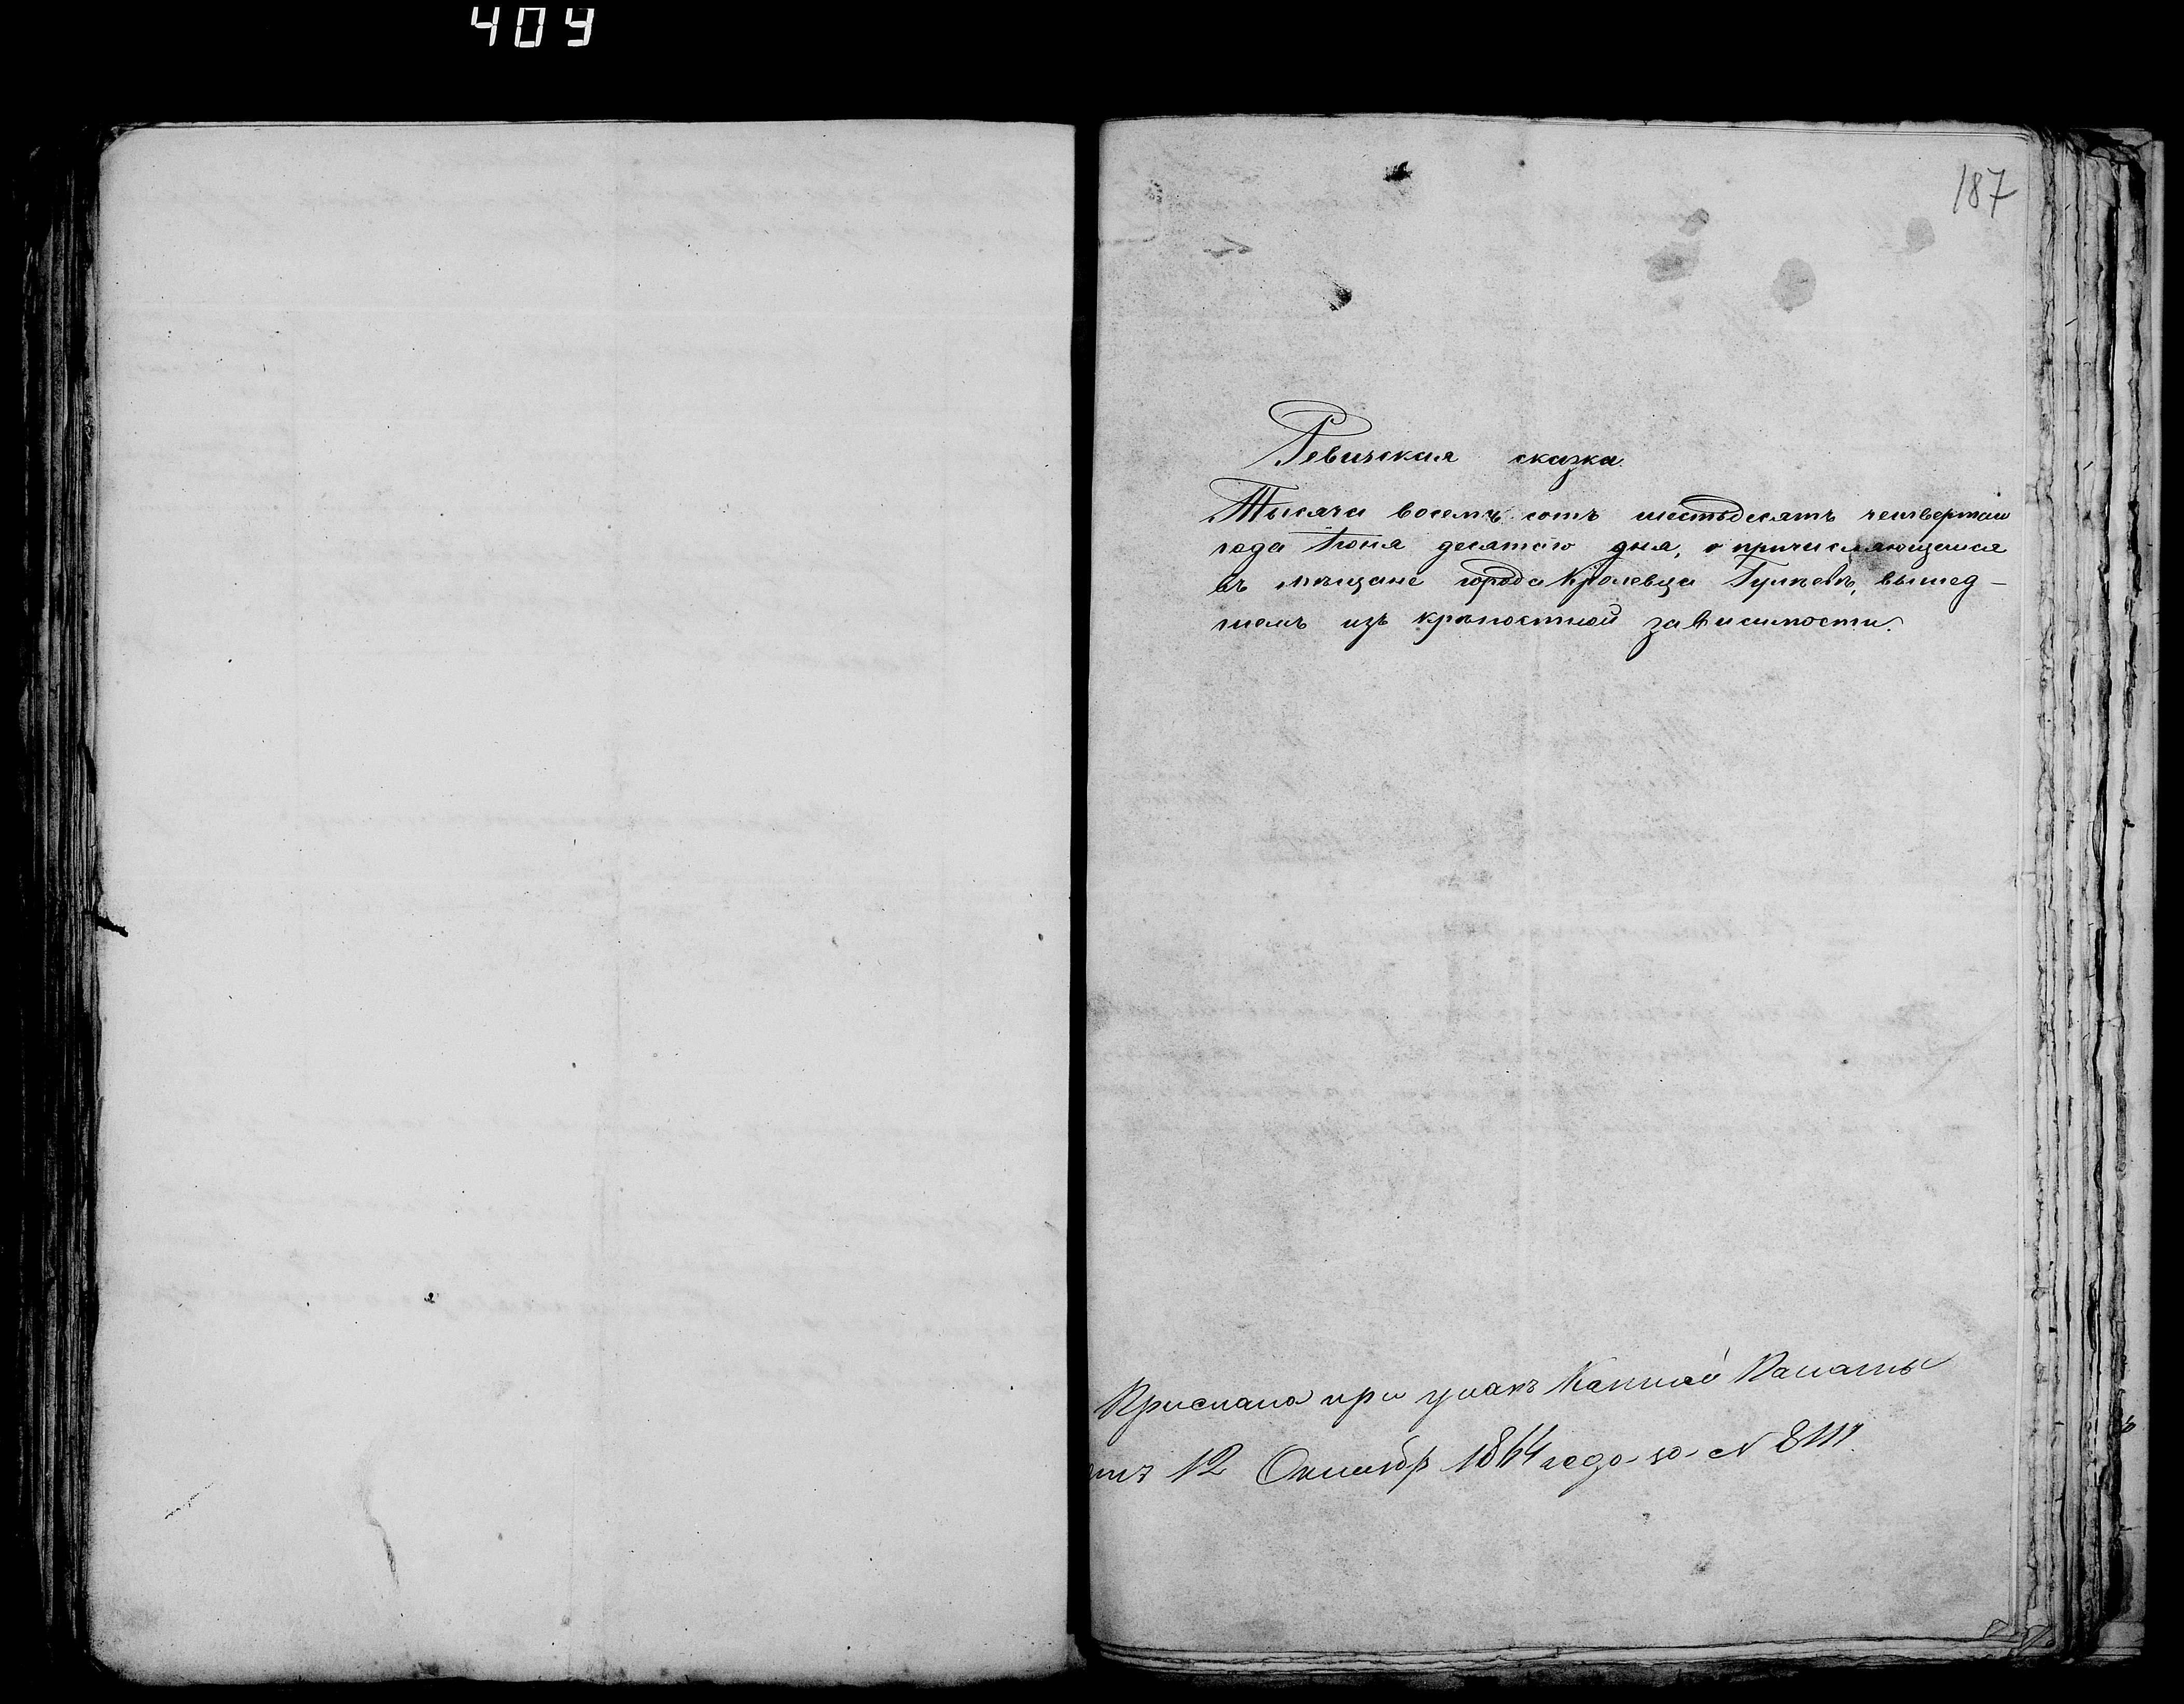 409
187
Ревизская сказка.
Тысяча восемъ сотъ шестьдесятъ четвертаго
года Іюня десятаго дня, о причисляющемся
въ мѣщане города Кролевца вышед-
шемъ изъ крѣпостной зависимости.
Прислана при указѣ Казенной Палаты
отъ 12 Октября 1864 года за № 8111.